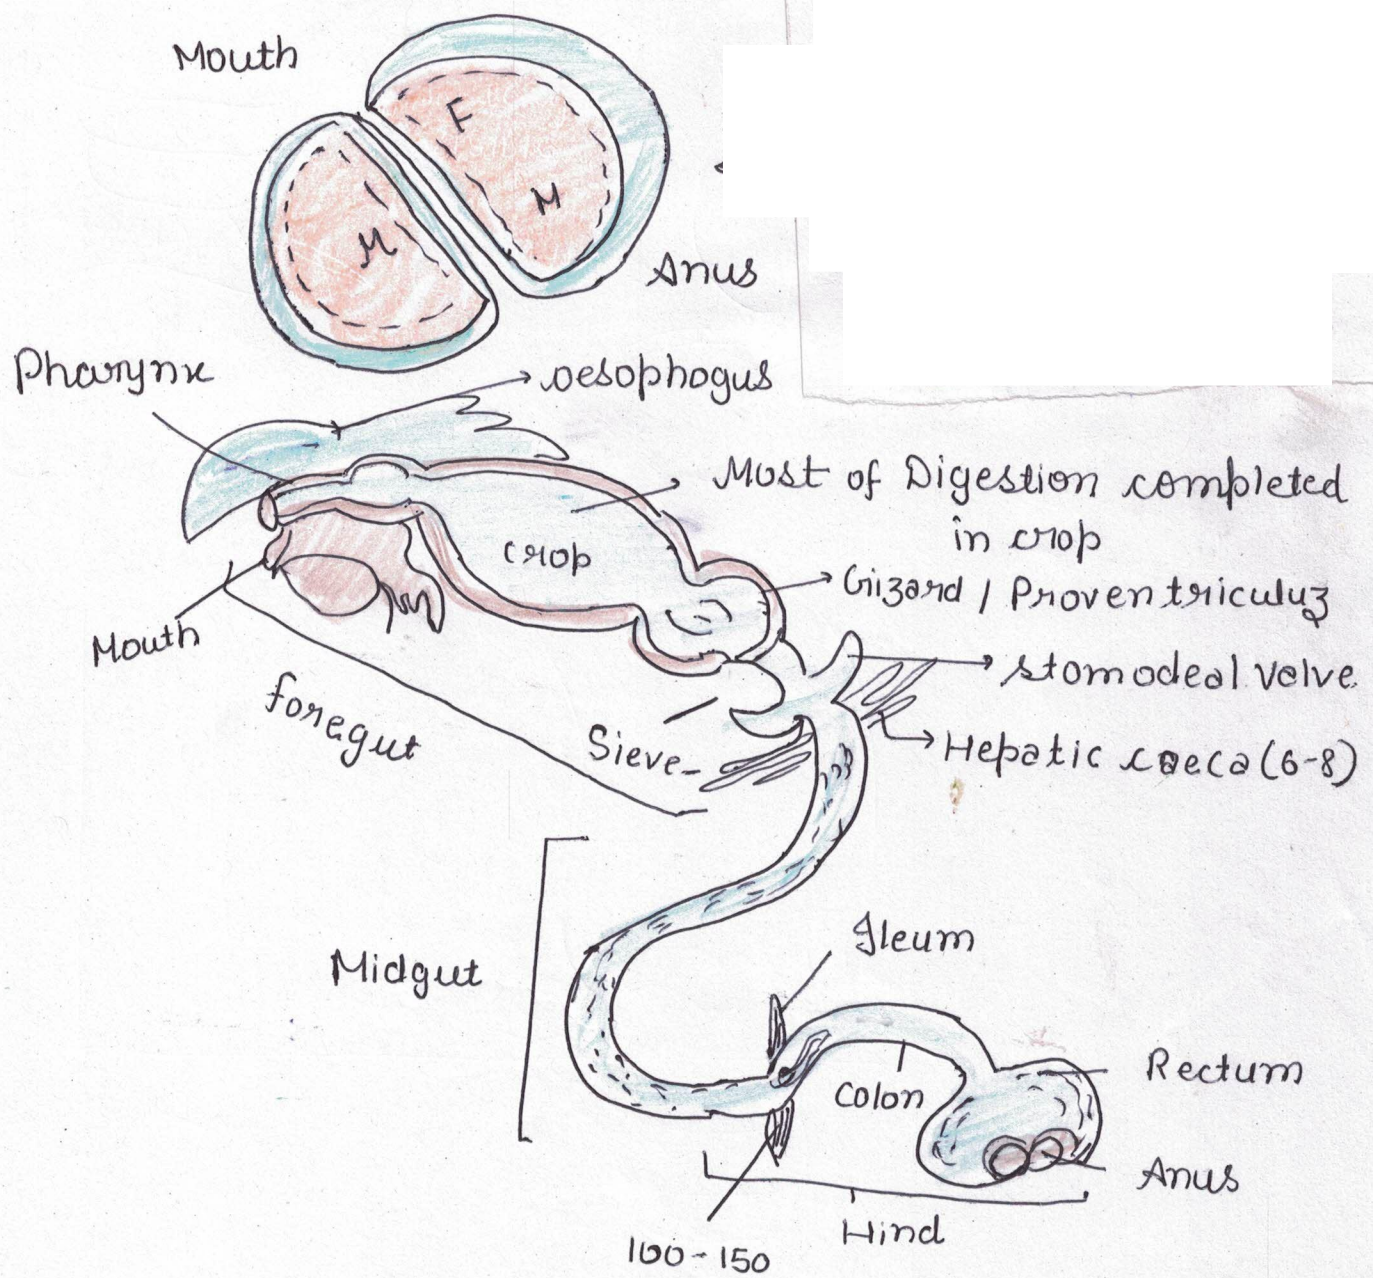 Mouth
F
M
M
Anus
Pharynx
oesophogus
Most of Digestion completed
in crop
crop
Gizard / Proventriculuz
Mouth
stomodeal valve
foregut
Sieve
Hepatic caeca (6-8)
Ileum
Midgut
Rectum
Colon
Anus
Hind
100-150